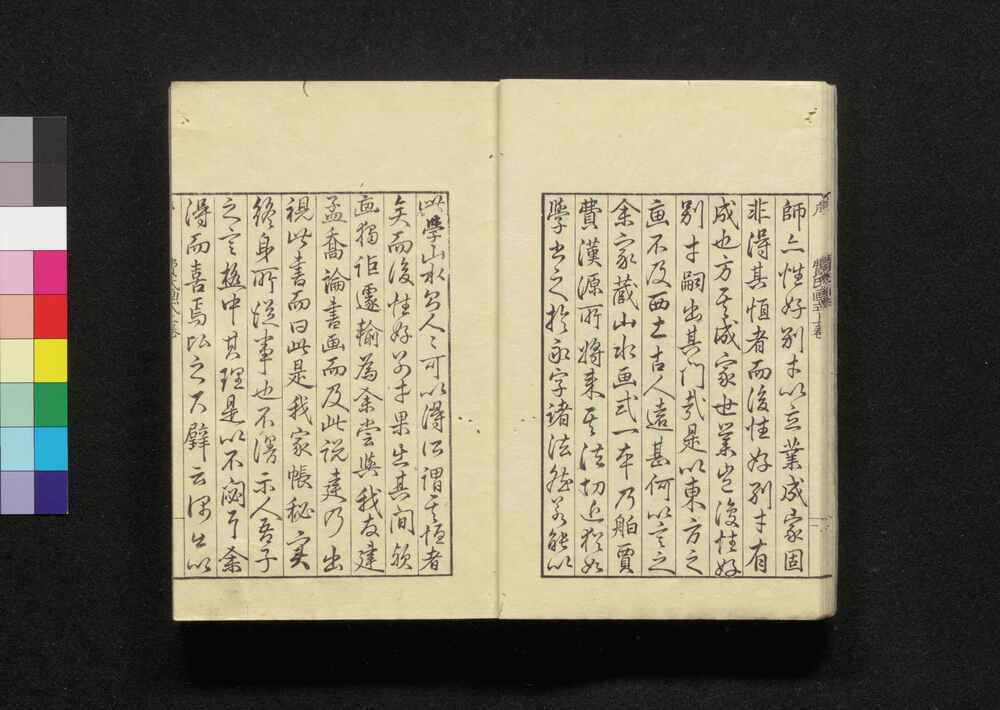 師亦性好別才以立業成家固
非得其恒者而後性好別才有
成也方其成家世業豈復性好
別才嗣出其門哉是以東方之
画不及西土古人遠甚何以言之
余家蔵山水画式一本乃舶賈
費漢源所将来其法切近猶如
學書之於永字諸法能
此學山水則人々可以得所謂其恒者
矣而後性好別才果出其間欤
画獨詎遽輸為余嘗與我友建
孟喬論書画而及此説建乃出
視此書而曰此是我家帳秘実
終身所從事也不漫示人吾子
之言極中其理是以不密耳余
得而喜焉比之尺璧云深出以
費氏画式 上巻